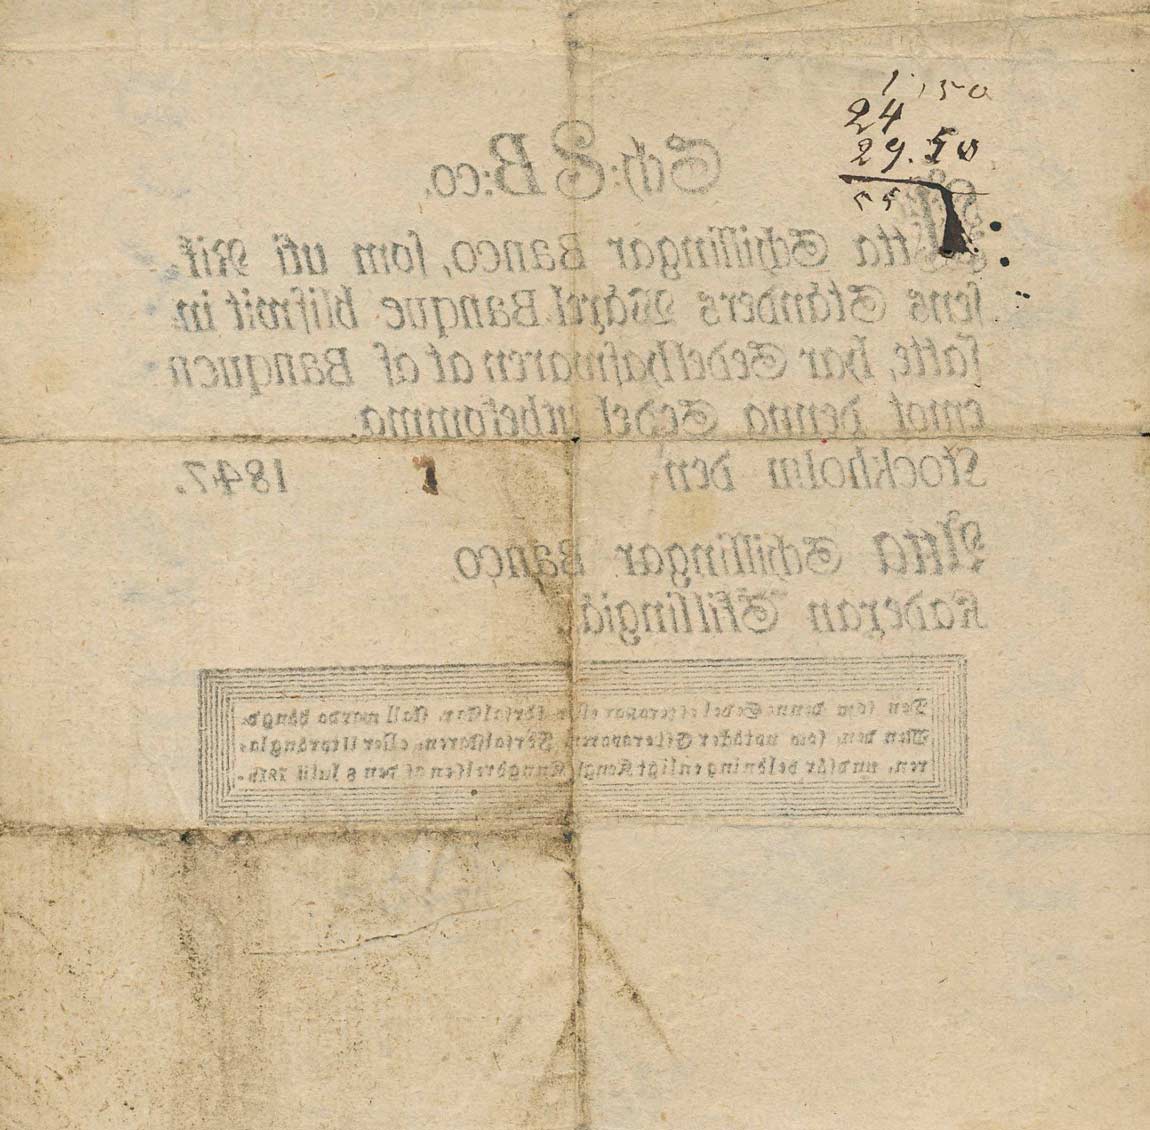 1,50
24
29.50
55
Sch: 8 B:co.
Åtta Schillingar Banco, som uti Rik-
sens Ständers Wäxel Banque blifwit in-
satte, har Sedelhafwaren at af Banquen
emot denna Sedel utbekomma.
Stockholm den 1847.
Åtta Schillingar Banco.
Kaderan Skillingiä.
Den som denna Sedel efterapar eller förfalskar, skall warda hängd.
Men den, som uptäcker Efteraparen, Förfalskaren, eller Utpränglaren, undfår belöning enligt Kongl. Kungörelsen af den 8 Julii